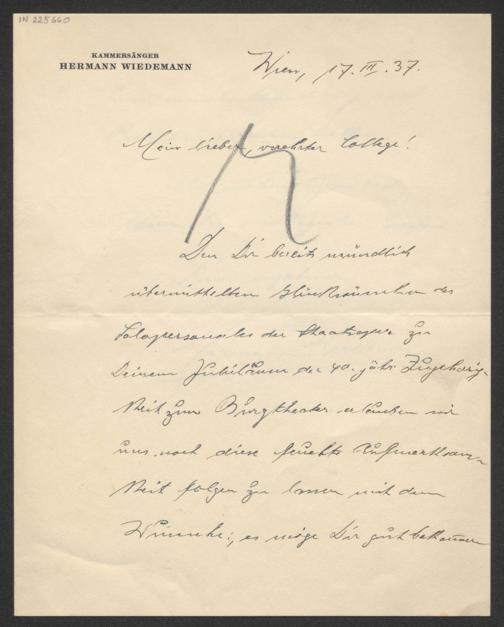 IN 225660
KAMMERSÄNGER
HERMANN WIEDEMANN
Wien, 17. III. 37.
Mein lieber, verehrter College!
Den Dir bereits mündlich
übermittelten Glückwünschen des
Solopersonales der Staatsoper zu
Deinem Jubiläum der 40.-jähr. Zugehörig-
keit zum Burgtheater erlauben wir
uns noch diese feuchte Aufmerksam-
keit folgen zu lassen mit dem
Wunsche:, es möge Dir gut bekommen